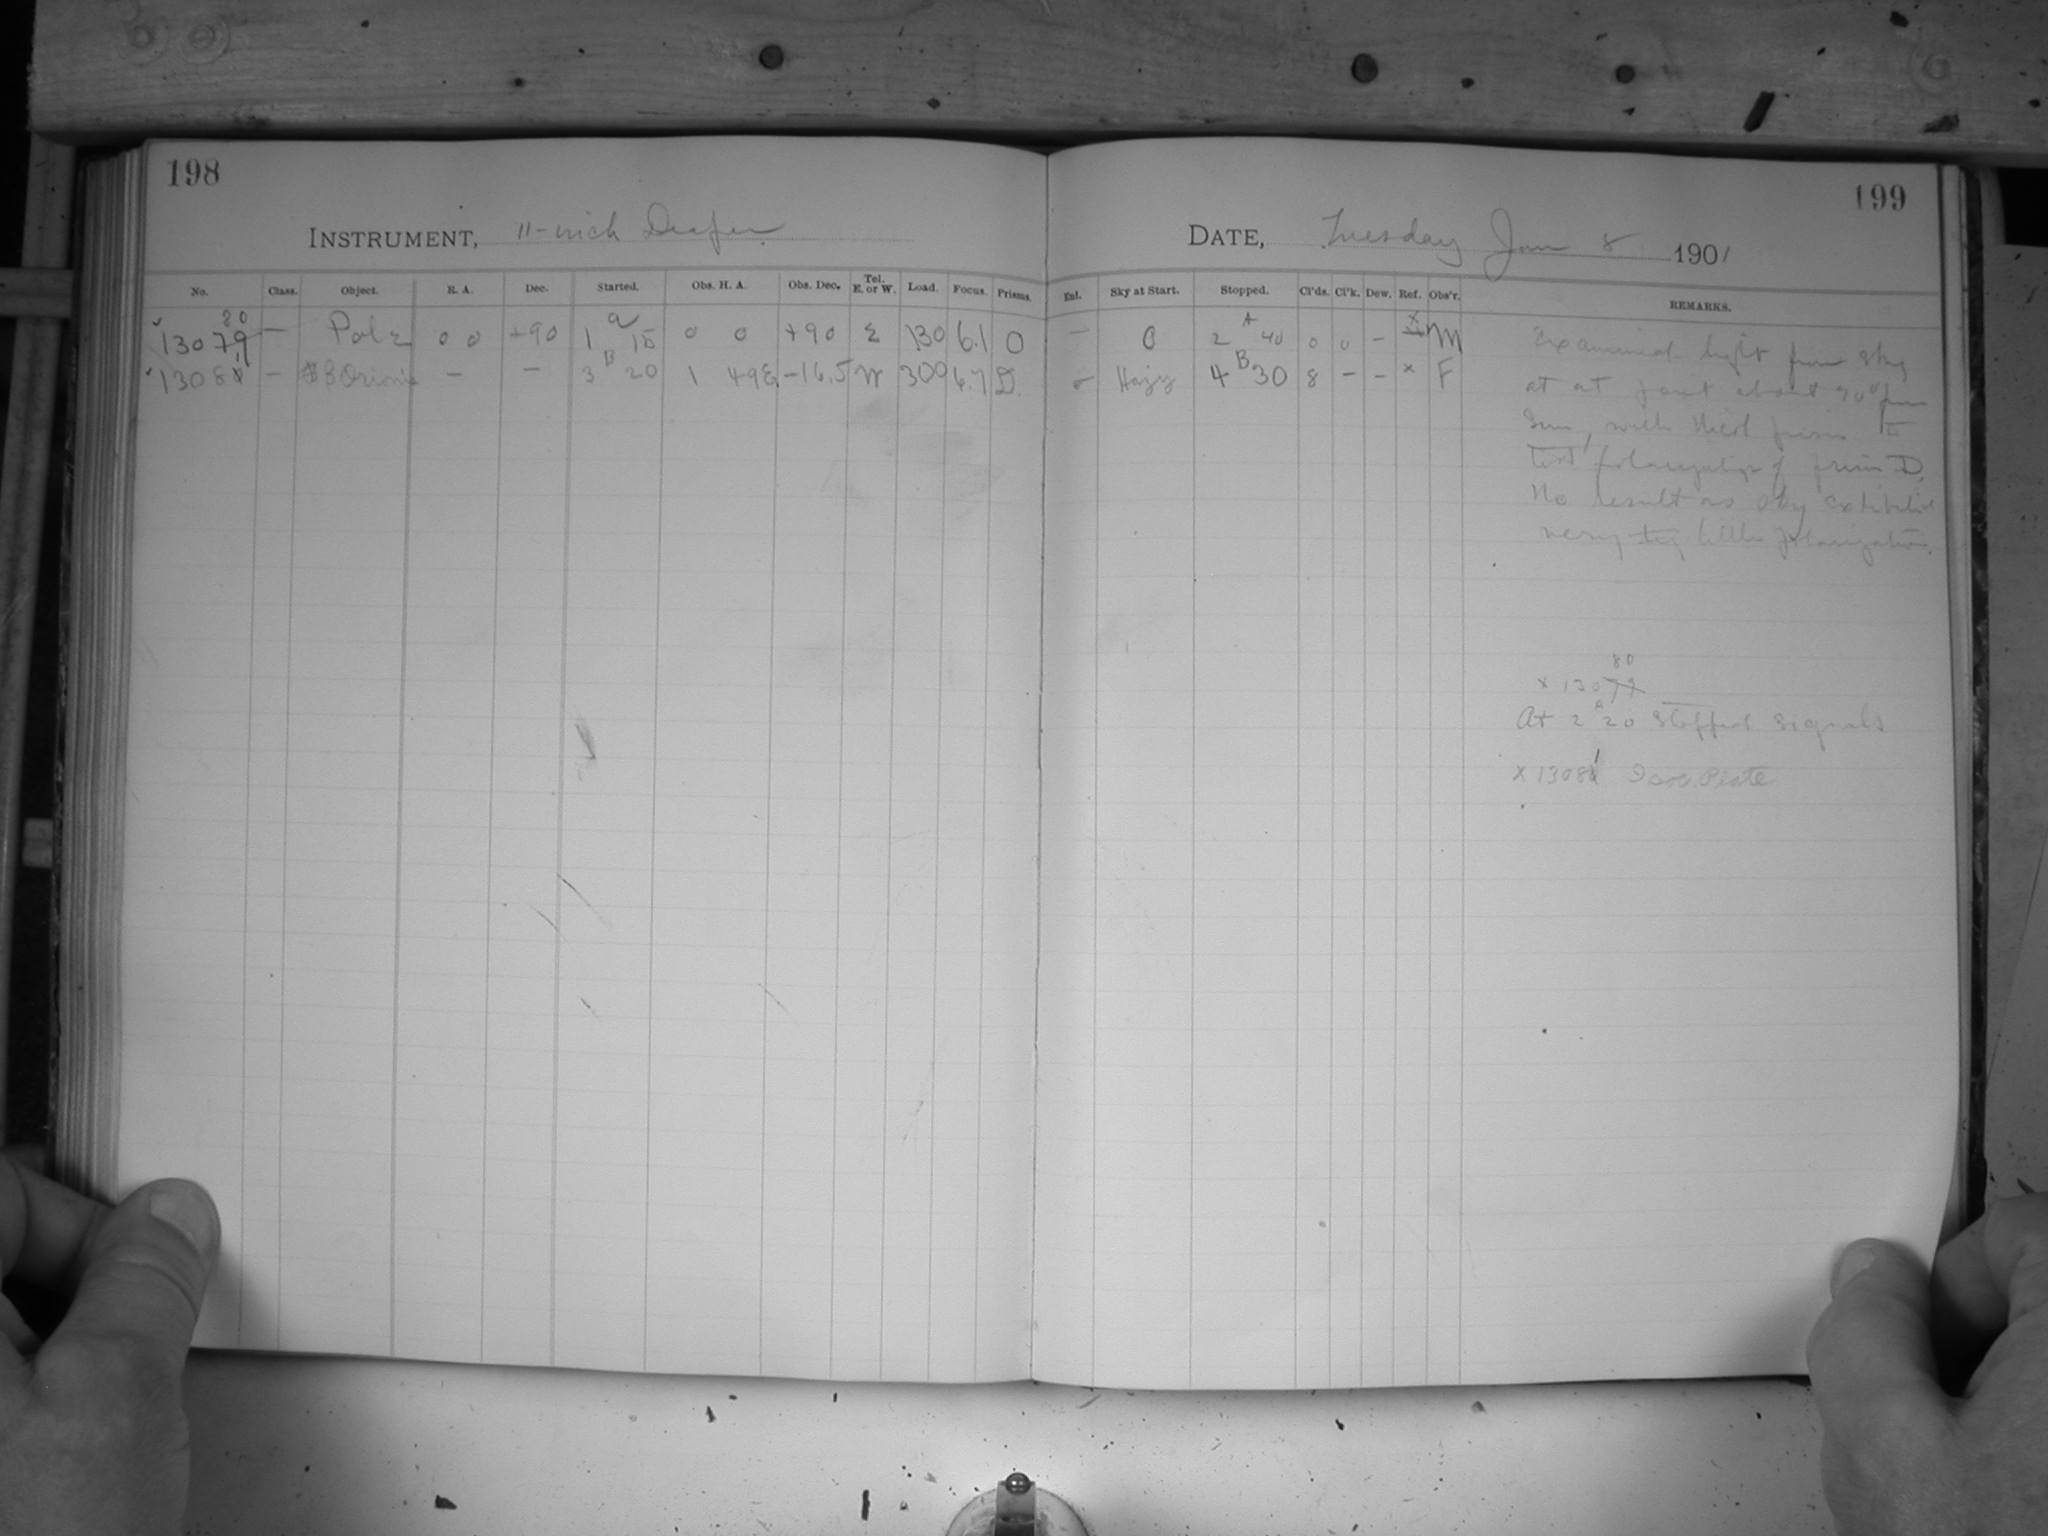 198
199
INSTRUMENT, 11-inch Draper
DATE, Tuesday Jan 8 1901
No. Class. Object. R. A. Dec. Started. Obs. H. A. Obs. Dec. Tel. E. or W. Load. Focus. Prisms. Enl. Sky at Start. Stopped. Cl'ds. Cl'k. Dew. Ref. Obs'r. REMARKS.
80
13079 — Pole 0 0 +90 1 a 15 0 0 +90 E 130 6.1 0 — C 2 A 40 0 0 — x M
1308 — β Orionis — — 3 B 20 1 49E -16.5 W 300 6.7 D Hazy 4 B 30 8 — — x F
Examined light from sky
at at point about 90° from
Sun, with Nicol prism to
test polarization of prism D.
No result as sky exhibited
very little polarization.
80
x 13079
At 2 A 20 stopped signals
x 1308 1 Isoc. Plate